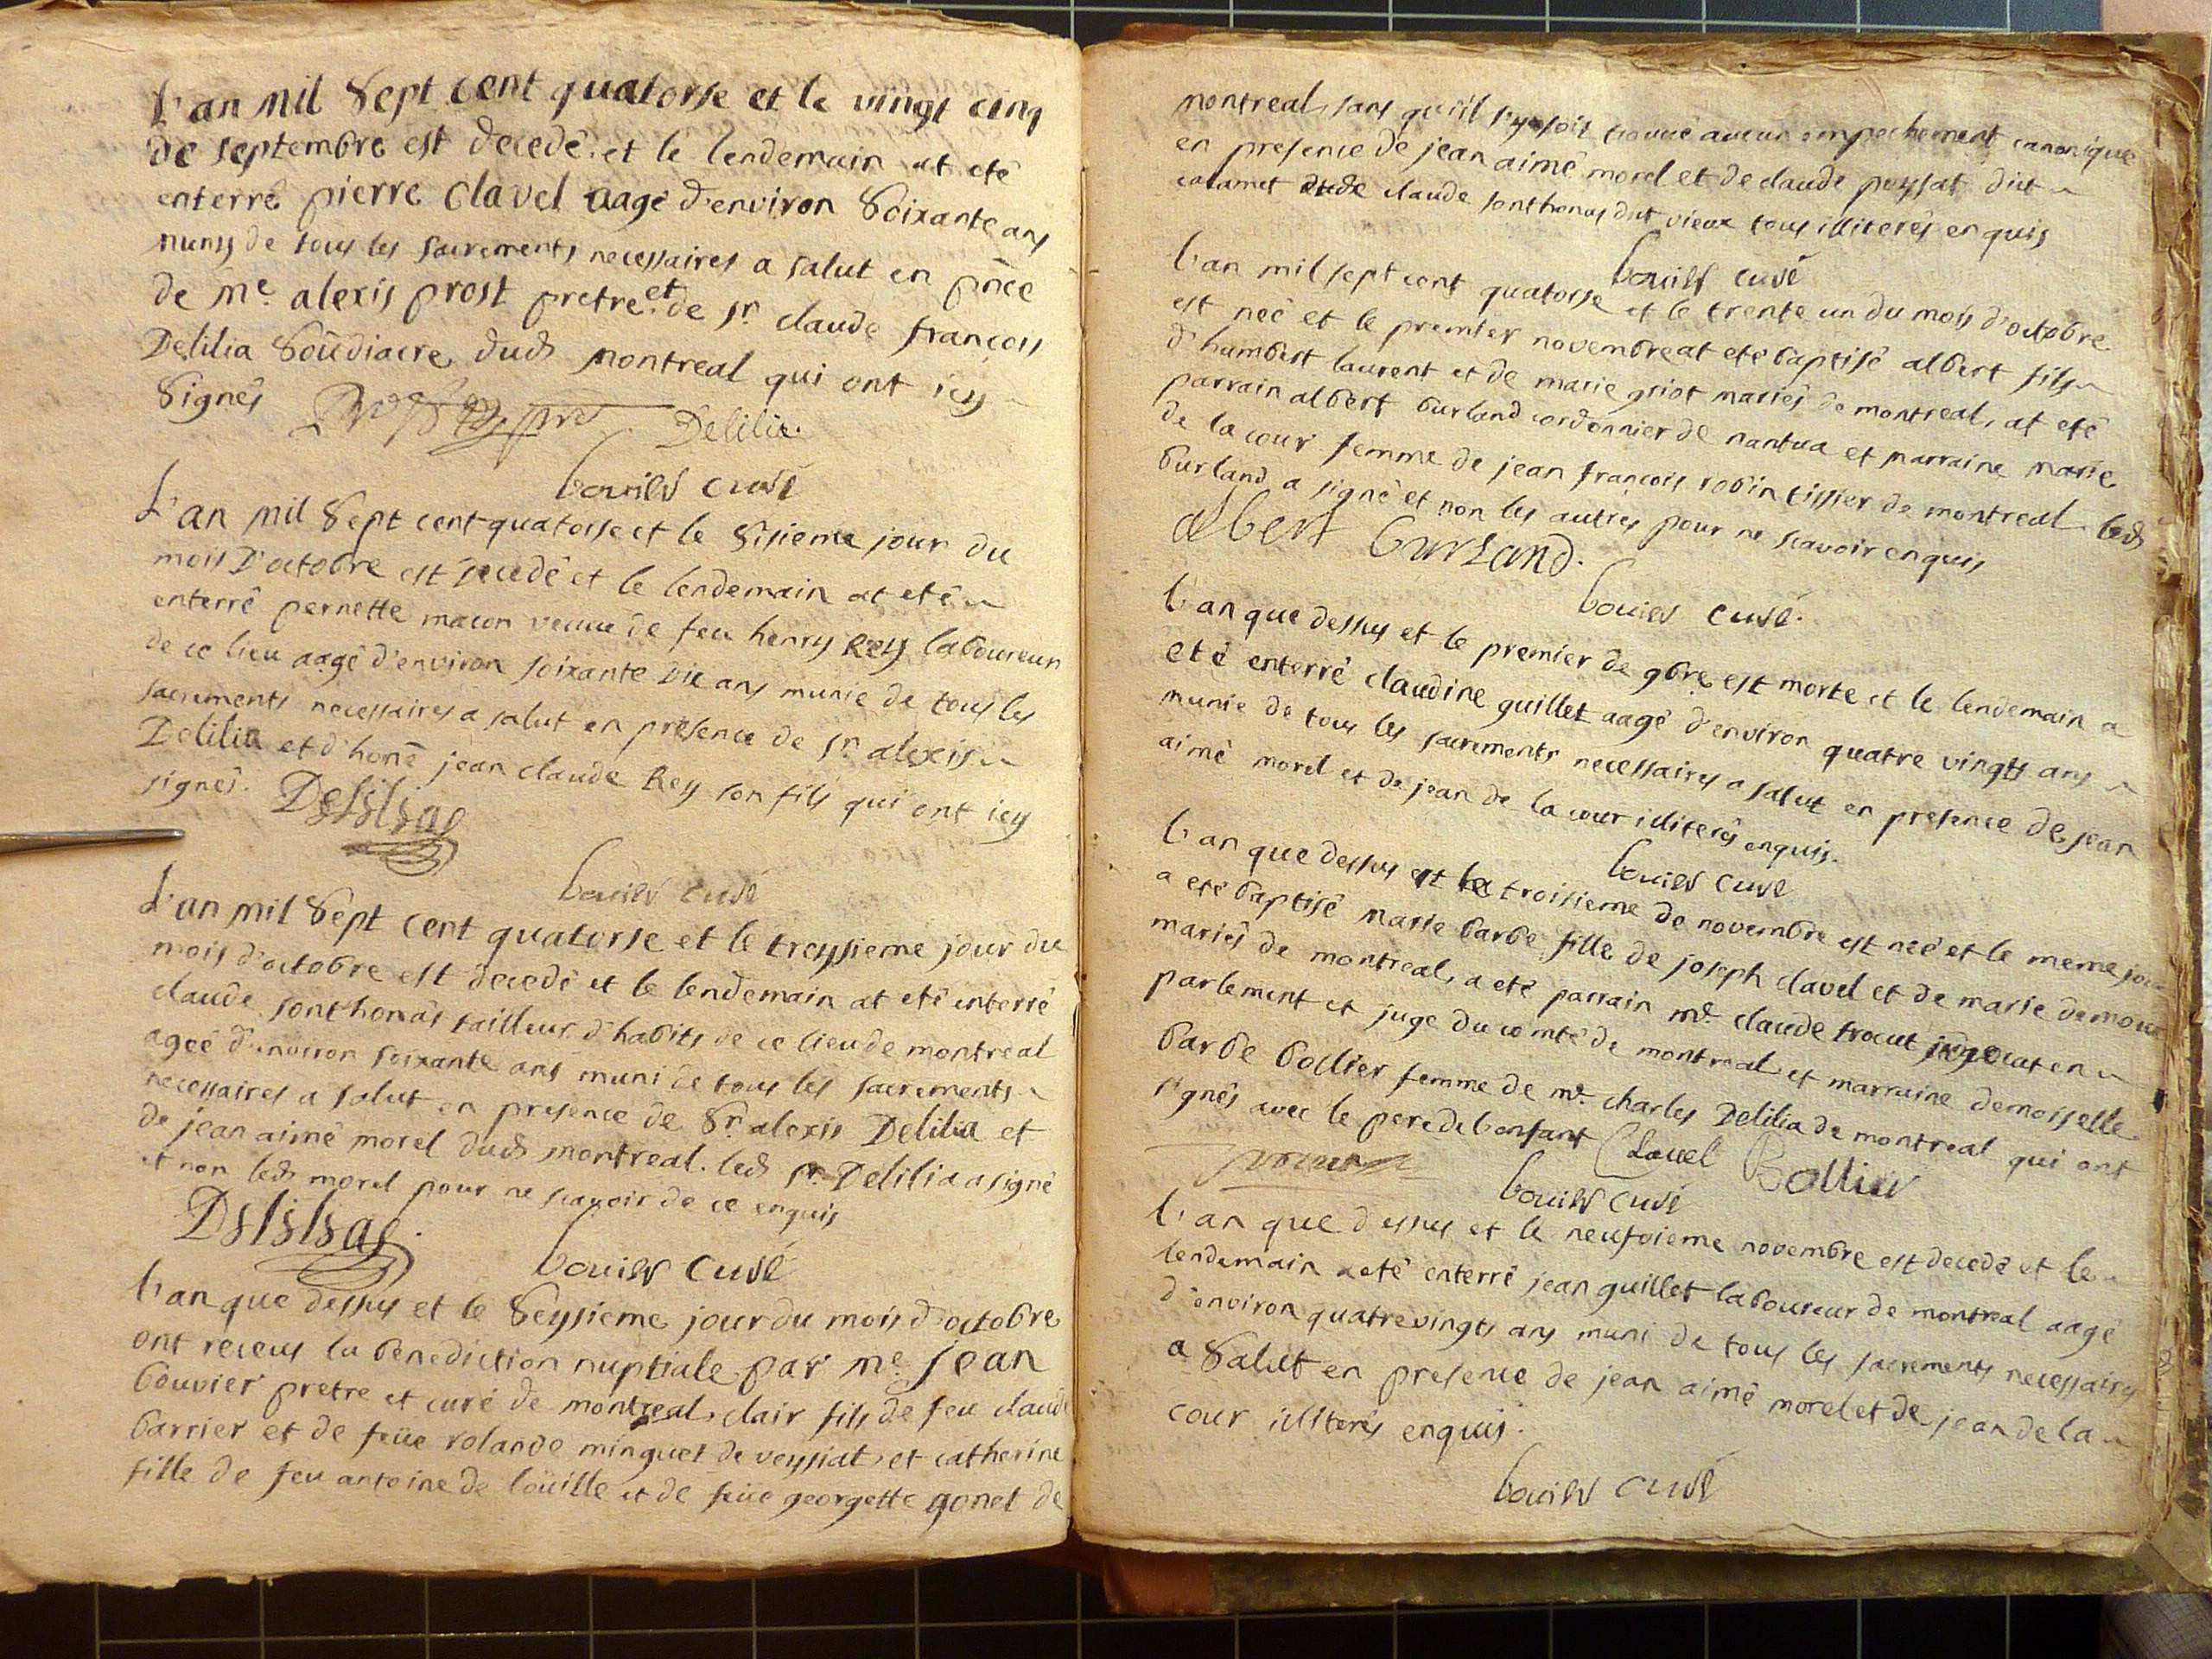 L'an mil Sept cent quatorse et le vingt cinq
de septembre est decedé et le lendemain at eté
enterré pierre Clavel aagé d'environ Soixante ans
munys de tous les sacrements necessaires a salut en pnce
de me. alexis prost pretre et de sr. claude françois
Delilia Soudiacre dud montreal qui ont icy
Signés
Delilia.
bouvier curé
L'an mil Sept cent quatorse et le Sisieme jour du
mois D'octobre est decedé et le lendemain at eté
enterré pernette macon veuve de feu henry Rey laboureur
de ce lieu aagé d'environ soixante dix ans munie de tous les
sacrements necessaires a salut en presence de sr. alexis
Delilia et d'hone jean claude Rey son fils qui ont icy
signés. Delilia
bouvier curé
L'an mil Sept cent quatorse et le treysieme jour du
mois d'octobre est decedé et le lendemain at eté enterré
claude sonthonas tailleur d'habits de ce lieu de montreal
ageé d'environ soixante ans muni de tous les sacrements
necessaires a salut en presence de Sr. alexis Delilia et
de jean aimé morel dud montreal. led sr. Delilia a signé
et non led morel pour ne scavoir de ce enquis
Delilia.
bouvier curé
l'an que dessus et le Seysieme jour du mois d'octobre
ont receus la benediction nuptiale par me. Jean
bouvier pretre et curé de montreal, clair fils de feu claude
barrier et de feüe rolande minguet de veysiat, et catherine
fille de feu antoine de loüille et de feüe georgette gonet de
montreal, sans qu'il s'y soit trouvé aucun empechement canonique
en presence de jean aimé morel et de claude peysat dit
calamet de claude sonthonas dit vieux tous illiterés enquis
bouvier curé
l'an mil sept cent quatorse et le trente un du mois d'octobre
est neé et le premier novembre at eté baptisé albert fils
d'humbert laurent et de marie griot mariés de montreal, at eté
parrain albert burland cordonnier de nantua et marraine marie
de la cour femme de jean françois robin tissier de montreal led
burland a signé et non les autres pour ne scavoir enquis
albert Burland.
bouvier curé.
l'an que dessus et le premier de 9bre est morte et le lendemain a
eté enterré claudine guillet aagé d'environ quatre vingts ans
munie de tous les sacrements necessaires a salut en presence de jean
aimé morel et de jean de la cour illiterés enquis.
bouvier curé
l'an que dessus et le troisieme de novembre est neé et le meme jour
a eté baptisé marie barbe fille de joseph clavel et de marie
mariés de montreal, a eté parrain mr. claude trocut en
parlement et juge du comté de montreal, et marraine demoiselle
barbe bollier femme de mr. charles Delilia de montreal qui ont
signés avec le pere de l'enfant Clavel Bollier
bouvier curé
l'an que dessus et le neufvieme novembre est decedé et le
lendemain a eté enterré jean guillet laboureur de montreal aagé
d'environ quatre vingts ans muni de tous les sacrements necessaires
a Salut en presence de jean aimé morel et de jean de la
cour illiterés enquis.
bouvier curé